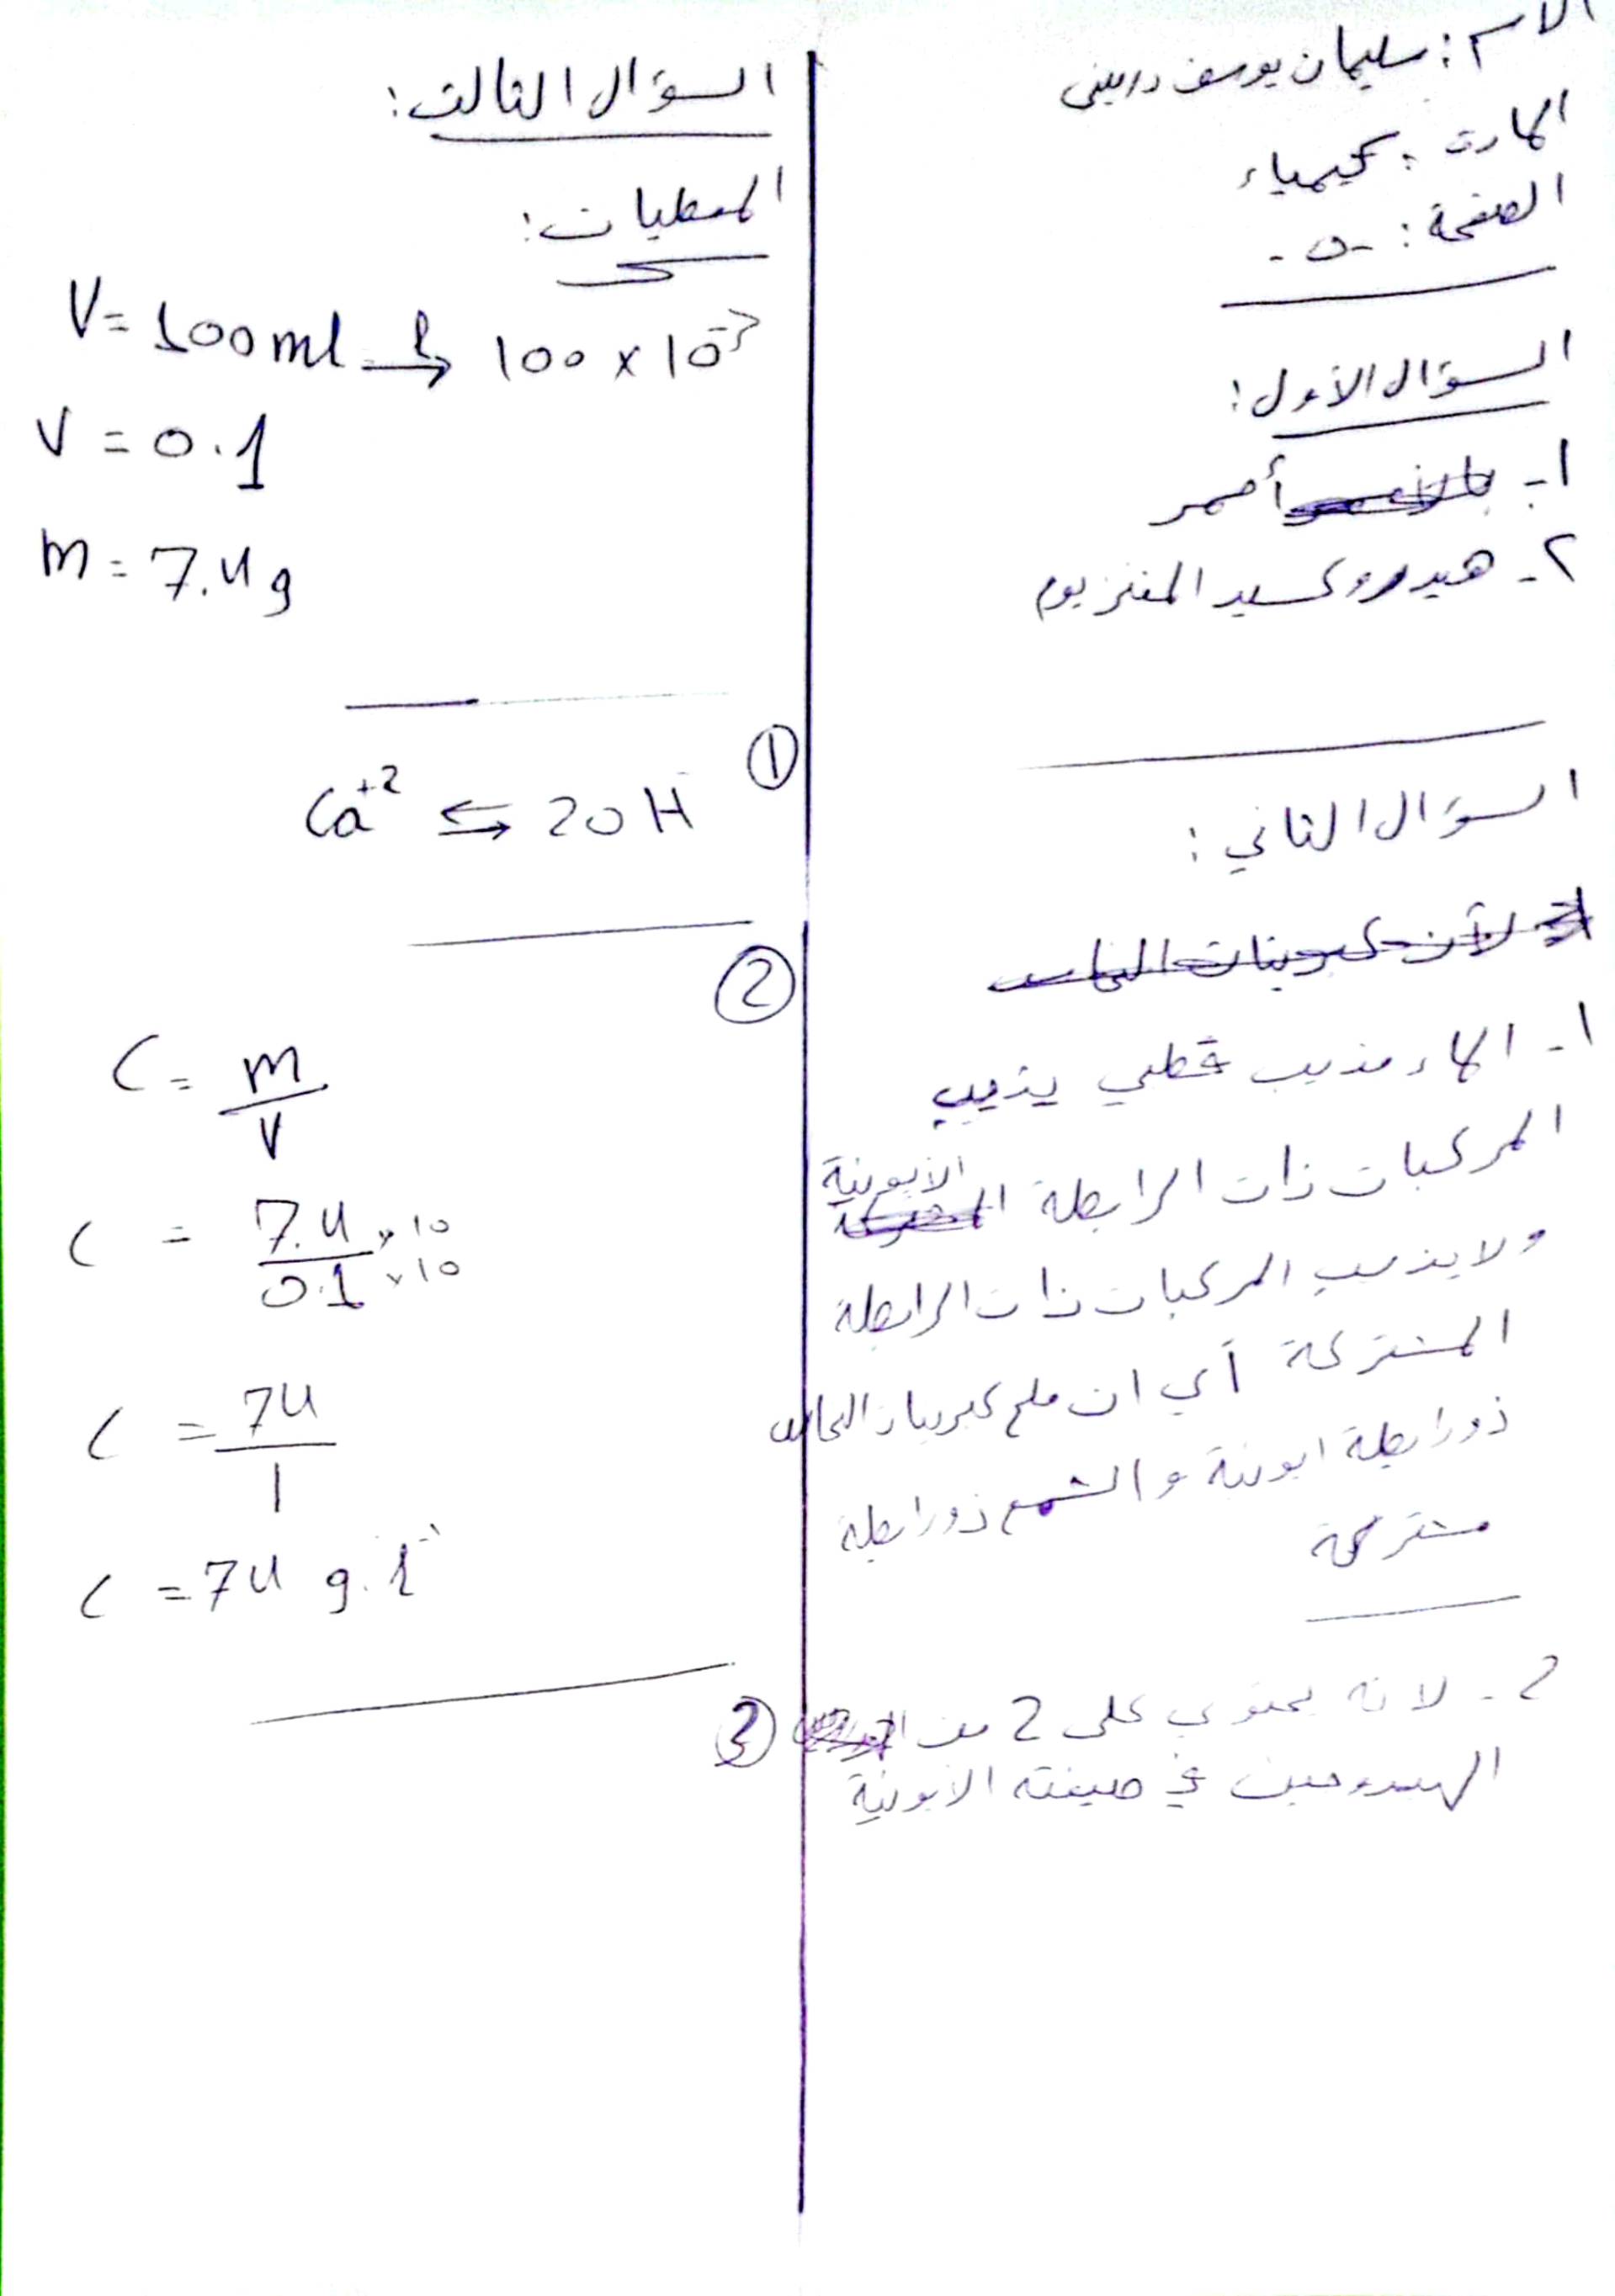 الاسم : سليمان يوسف
المادة : كيمياء
الصفحة : -٥-
السؤال الأول :
١- أصفر
٢- هيدروكسيد المغنزيوم
السؤال الثاني :
١- الماء مذيب قطبي يذيب
المركبات ذات الرابطة الايونية
ولا يذيب المركبات ذات الرابطة
المشتركة أي ان ملح كبريتات النحاس
ذو رابطة ايونية و الشمع ذو رابطة
مشتركة
2- لانه يحتوي على 2 من
الهيدروجين في صيغته الايونية
السؤال الثالث :
المعطيات :
V = 100 ml → l 100 × 10⁻³
V = 0.1
m = 7.4 g
①
Ca⁺² ⇆ 2OH⁻
②
C = m/V
C = 7.4 × 10 / 0.1 × 10
C = 74/1
C = 74 g.l⁻¹
③